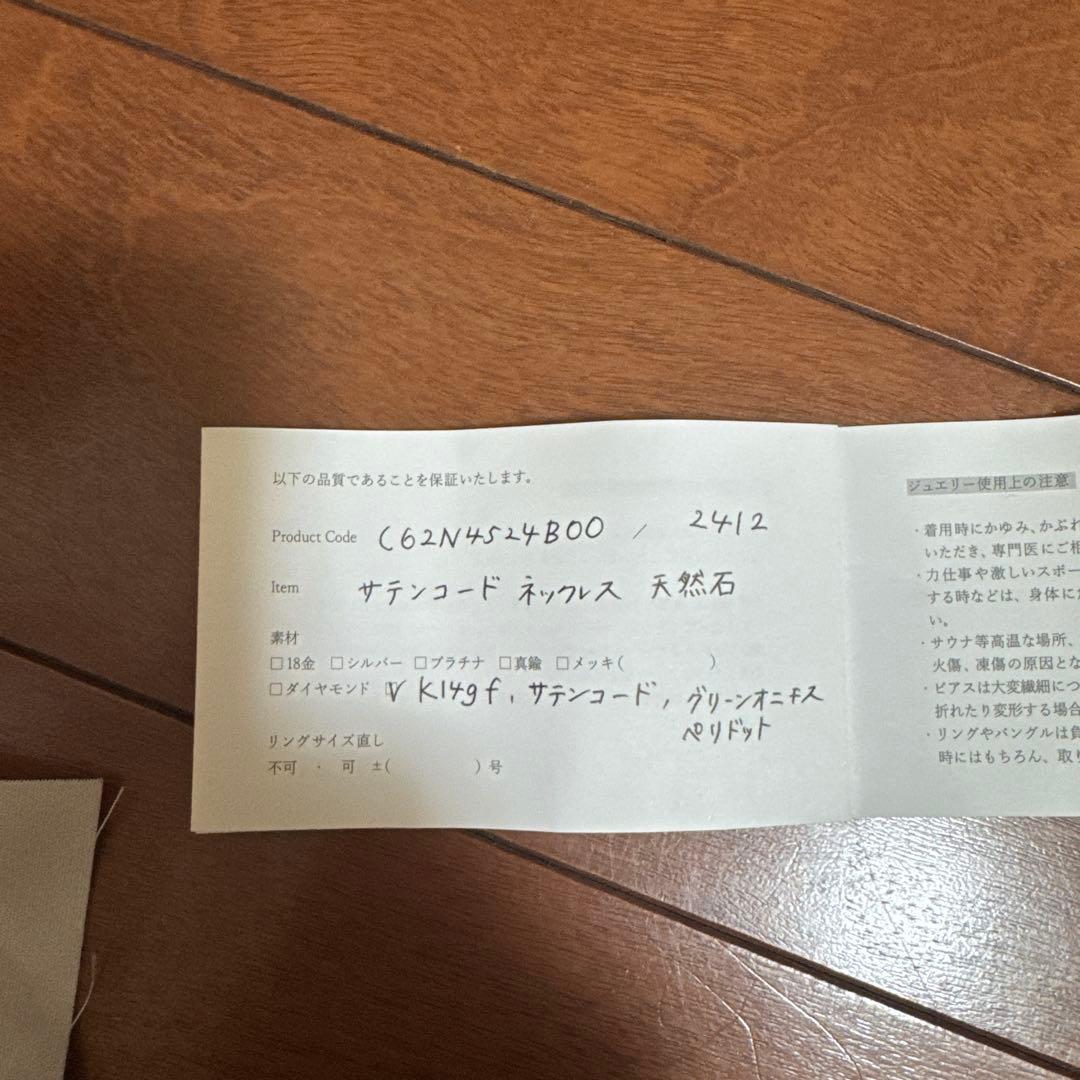 以下の品質であることを保証いたします。
Product Code C62N4524B00 / 2412
Item サテンコード ネックレス 天然石
素材
□18金 □シルバー □プラチナ □真鍮 □メッキ( )
□ダイヤモンド ☑ K14gf, サテンコード, グリーンオニキス
ペリドット
リングサイズ直し
不可 ・ 可 ±( )号
ジュエリー使用上の注意
・着用時にかゆみ、かぶれ
いただき、専門医にご相
・力仕事や激しいスポー
する時などは、身体に
い。
・サウナ等高温な場所、
火傷、凍傷の原因とな
・ピアスは大変繊細につ
折れたり変形する場合
・リングやバングルは負
時にはもちろん、取り